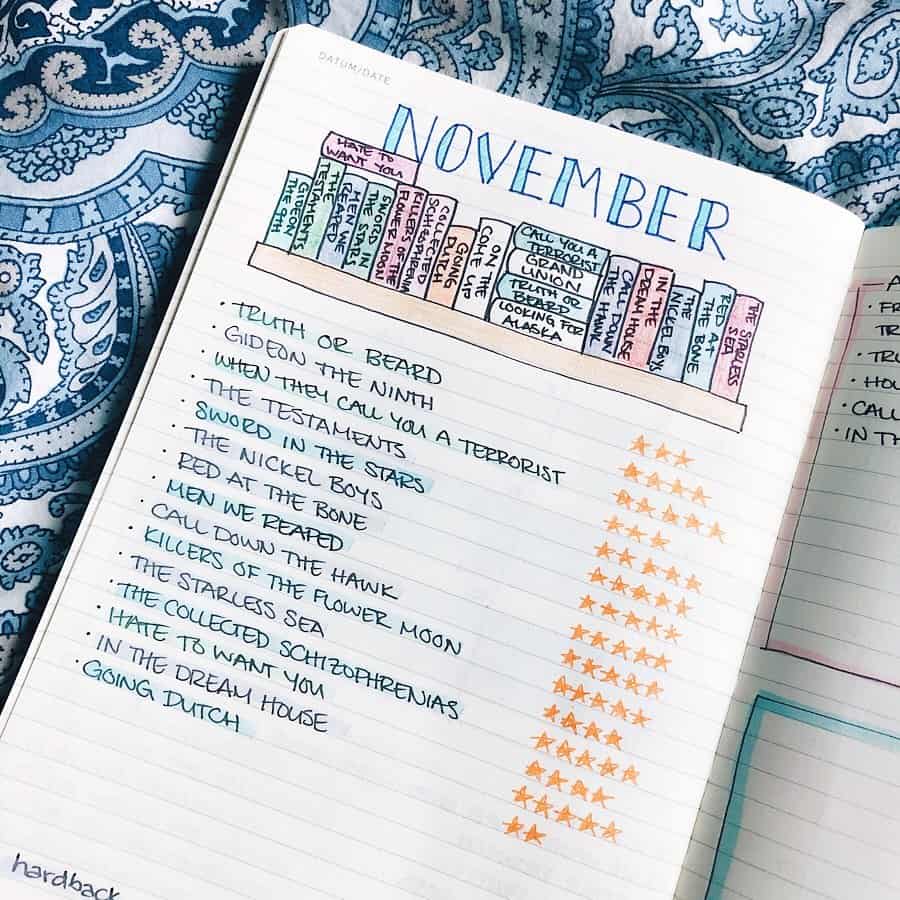 DATUM/DATE
NOVEMBER
HATE TO
WANT YOU
THE 9TH
GIDEON
THE
TESTAMENTS
MEN WE
REAPED
SWORD IN
THE STARS
KILLERS OF THE
FLOWER MOON
COLLECTED
SCHIZOPHRENIA
GOING
DUTCH
ON THE
COME UP
CALL YOU A
TERRORIST
GRAND
UNION
TRUTH OR
BEARD
LOOKING FOR
ALASKA
CALL DOWN
THE HAWK
IN THE
DREAM HOUSE
THE
NICKEL BOYS
RED AT
THE BONE
THE STARLESS
SEA
· TRUTH OR BEARD
· GIDEON THE NINTH
· WHEN THEY CALL YOU A TERRORIST
· THE TESTAMENTS
· SWORD IN THE STARS
· THE NICKEL BOYS
· RED AT THE BONE
· MEN WE REAPED
· CALL DOWN THE HAWK
· KILLERS OF THE FLOWER MOON
· THE STARLESS SEA
· THE COLLECTED SCHIZOPHRENIAS
· HATE TO WANT YOU
· IN THE DREAM HOUSE
· GOING DUTCH
hardback
· CALL
· IN TH